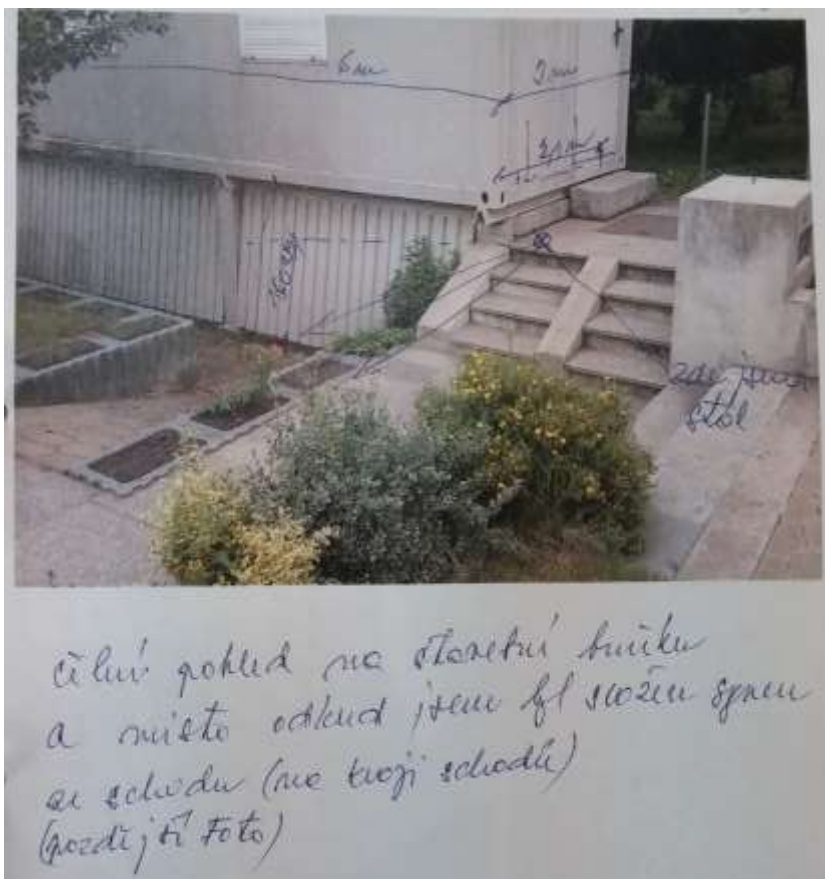 6 m
3 m
zde jsem
stál
čelní pohled na stavební buňku
a místo odkud jsem byl sražen synem
ze schodů (na kraji schodů)
(pozdější Foto)